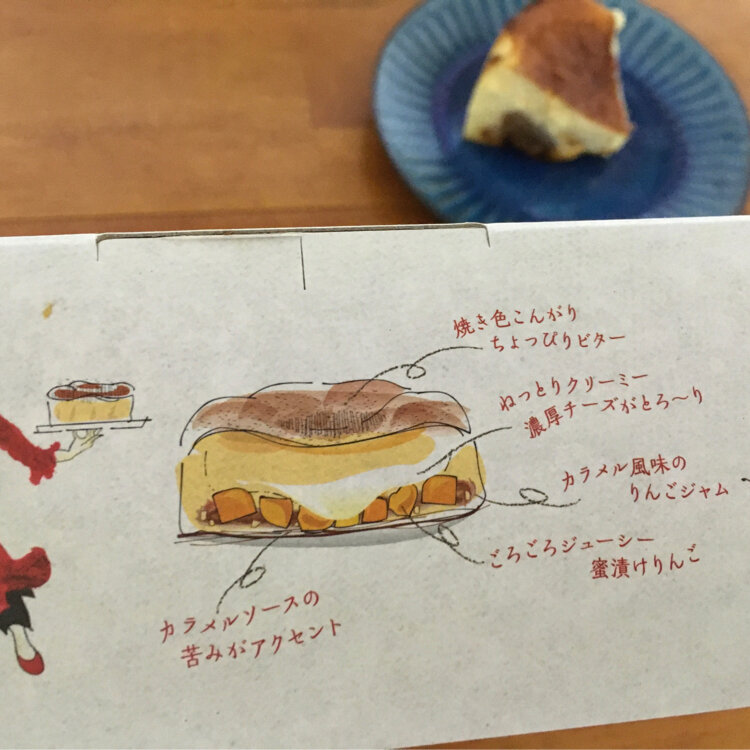 焼き色こんがり
ちょっぴりビター
ねっとりクリーミー
濃厚チーズがとろ〜り
カラメル風味の
りんごジャム
ごろごろジューシー
蜜漬けりんご
カラメルソースの
苦みがアクセント